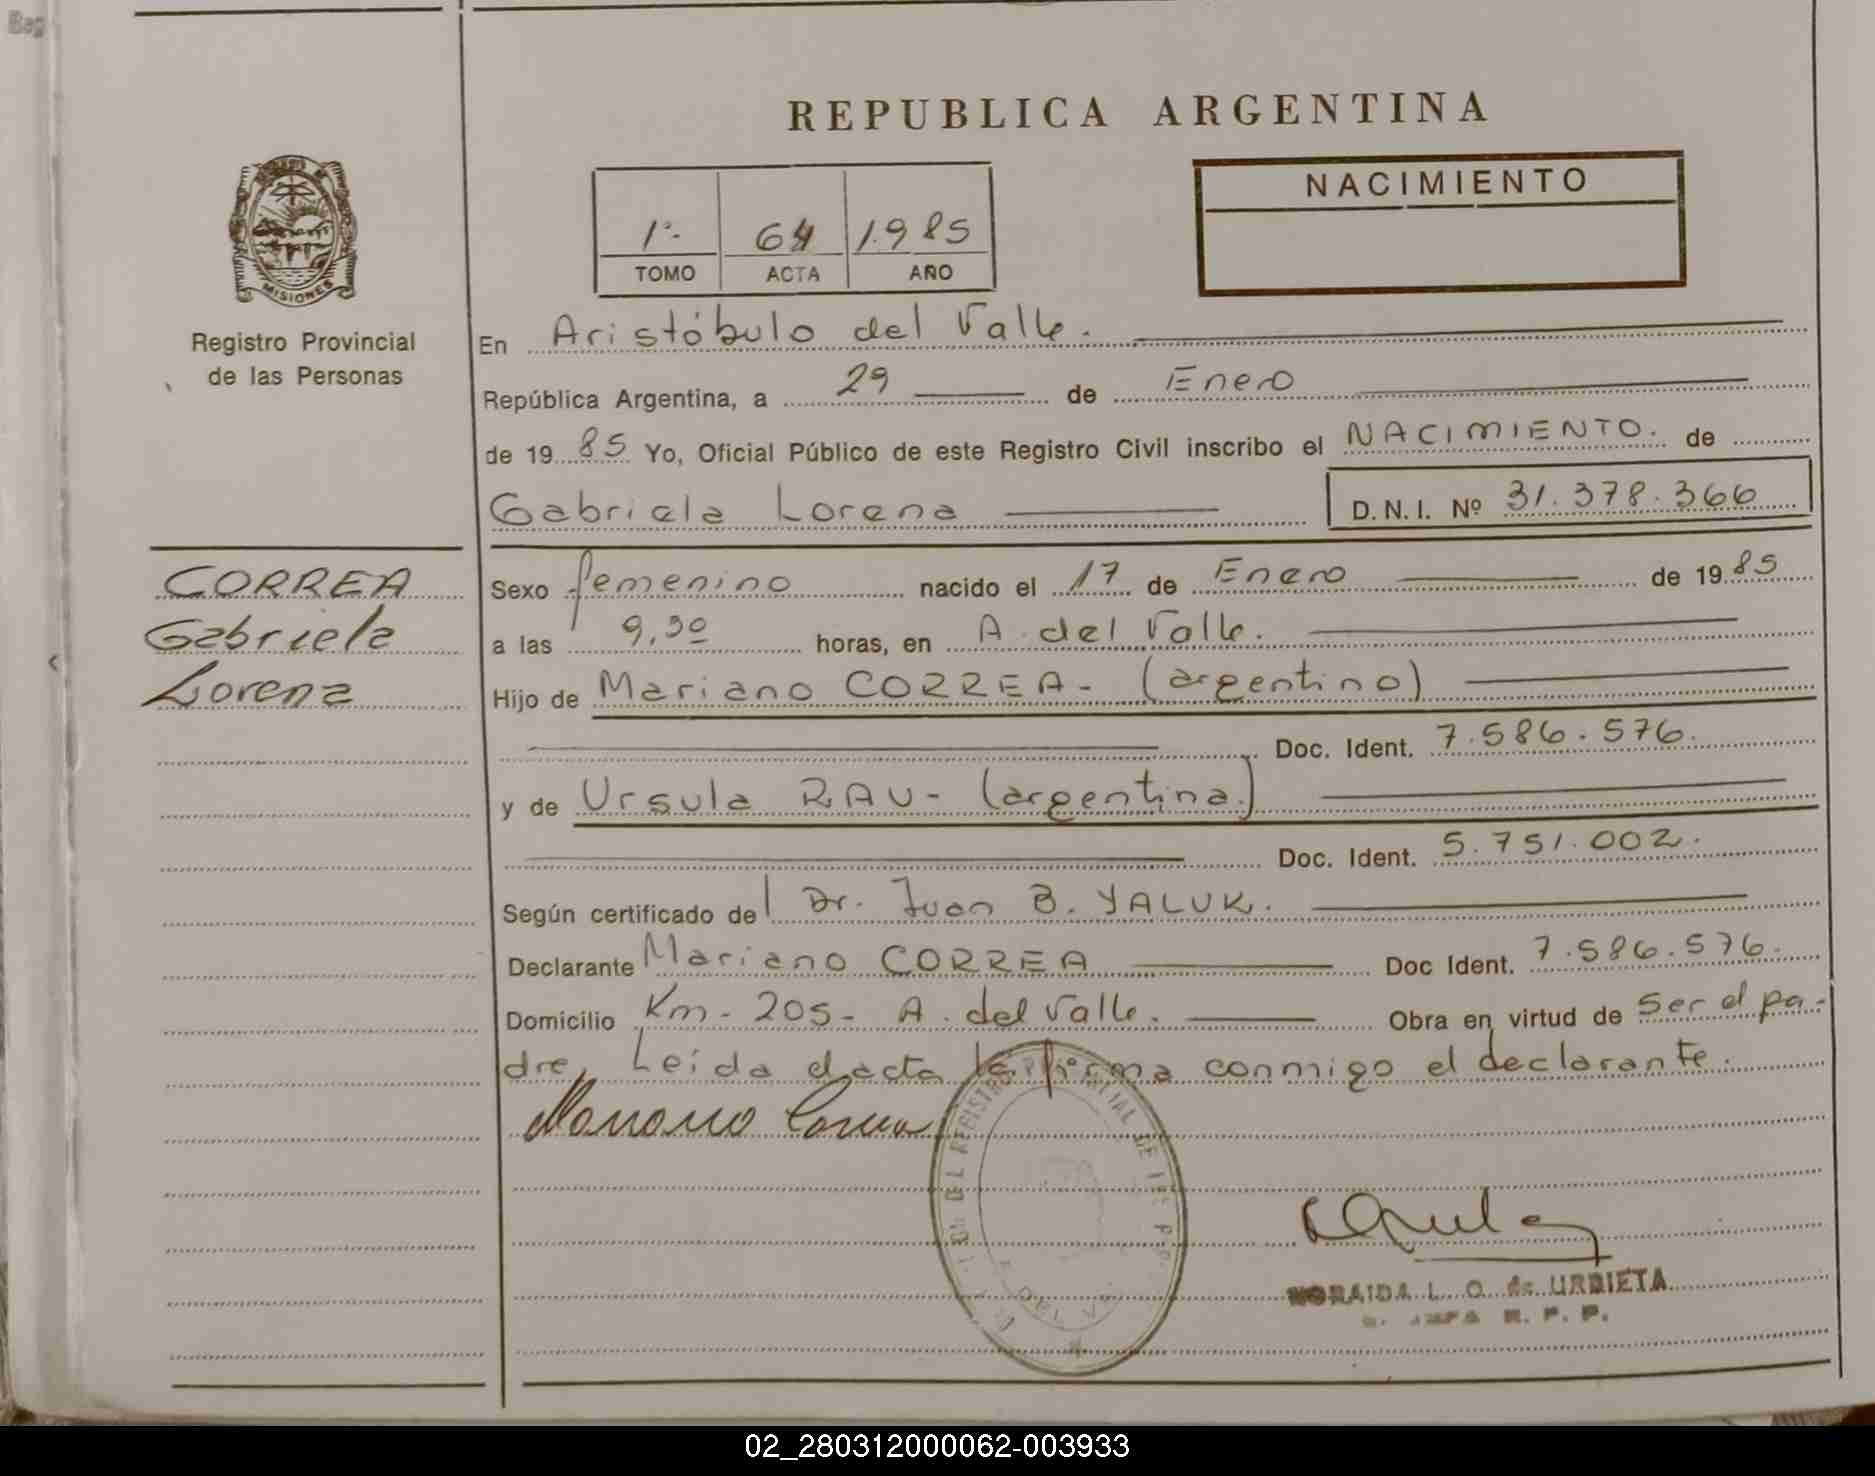 REPUBLICA ARGENTINA
MISIONES
Registro Provincial
de las Personas
1º- 64 1.985
TOMO ACTA AÑO
NACIMIENTO
En Aristóbulo del Valle.
República Argentina, a 29 de Enero
de 19 85 Yo, Oficial Público de este Registro Civil inscribo el NACIMIENTO. de
Gabriela Lorena D.N.I. Nº 31.378.366
CORREA
Gabriela
Lorena
Sexo femenino nacido el 17 de Enero de 19 85
a las 9,30 horas, en A. del Valle.
Hijo de Mariano CORREA- (argentino)
Doc. Ident. 7.586.576.
y de Ursula RAU- (argentina.)
Doc. Ident. 5.751.002.
Según certificado del Dr. Juan B. YALUK.
Declarante Mariano CORREA Doc Ident. 7.586.576.
Domicilio Km- 205- A. del Valle. Obra en virtud de Ser el pa-
dre, Leída el acta la firma conmigo el declarante.
Mariano Correa
DEL REGISTRO DE LAS
NORAIDA L. O. de URBIETA
R. P. P.
02_280312000062-003933